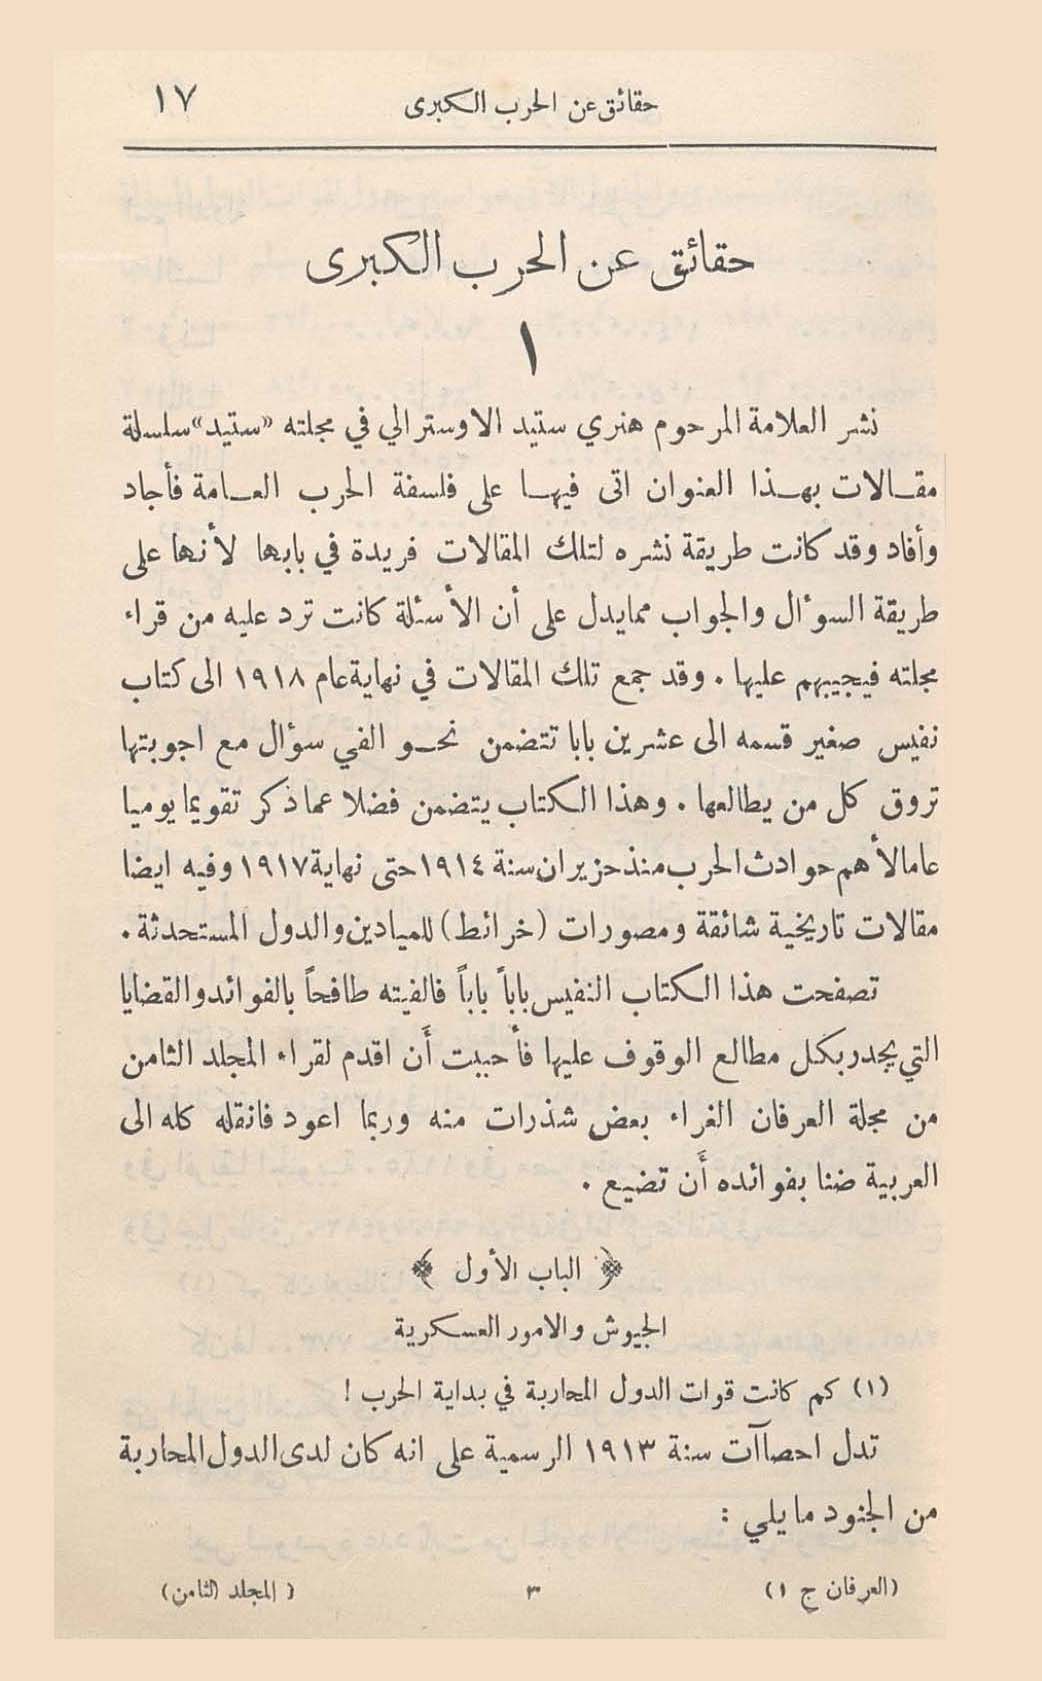 حقائق عن الحرب الكبرى ١٧
حقائق عن الحرب الكبرى
١
نشر العلامة المرحوم هنري ستيد الاوسترالي في مجلته «ستيد» سلسلة
مقالات بهذا العنوان اتى فيها على فلسفة الحرب العامة فأجاد
وأفاد وقد كانت طريقة نشره لتلك المقالات فريدة في بابها لأنها على
طريقة السوءال والجواب ممايدل على أن الأسئلة كانت ترد عليه من قراء
مجلته فيجيبهم عليها . وقد جمع تلك المقالات في نهاية عام ١٩١٨ الى كتاب
نفيس صغير قسمه الى عشرين بابا تتضمن نحو الفي سؤال مع اجوبتها
تروق كل من يطالعها . وهذا الكتاب يتضمن فضلا عما ذكر تقويما يوميا
عاما لأهم حوادث الحرب منذ حزيران سنة ١٩١٤ حتى نهاية ١٩١٧ وفيه ايضا
مقالات تاريخية شائقة ومصورات (خرائط) للميادين والدول المستحدثة .
تصفحت هذا الكتاب النفيس باباً باباً فالفيته طافحاً بالفوائد والقضايا
التي يجدر بكل مطالع الوقوف عليها فأحببت أن اقدم لقراء المجلد الثامن
من مجلة العرفان الغراء بعض شذرات منه وربما اعود فانقله كله الى
العربية ضنا بفوائده أن تضيع .
﴿ الباب الأول ﴾
الجيوش والامور العسكرية
(١) كم كانت قوات الدول المحاربة في بداية الحرب !
تدل احصاآت سنة ١٩١٣ الرسمية على انه كان لدى الدول المحاربة
من الجنود ما يلي :
(العرفان ج ١) ٣ (المجلد الثامن)